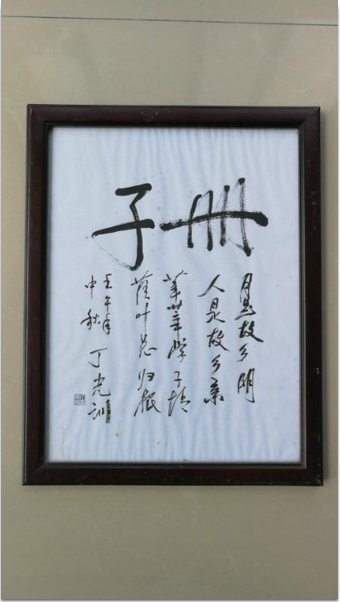 册子
月是故乡明
人是故乡亲
莘莘学子
落叶总归根
壬午年
中秋
丁光训